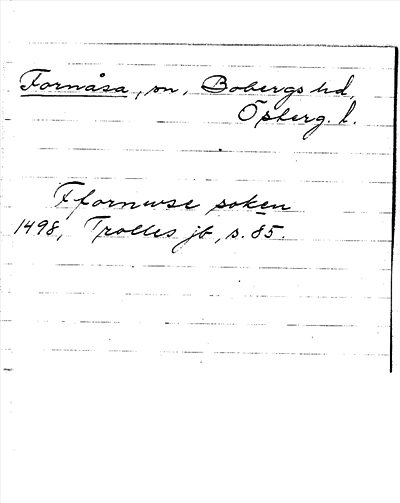 Fornåsa, sn, Bobergs hd,
Östberg. l.
Ffornwse soken
1498, Trolles jb, s. 85.